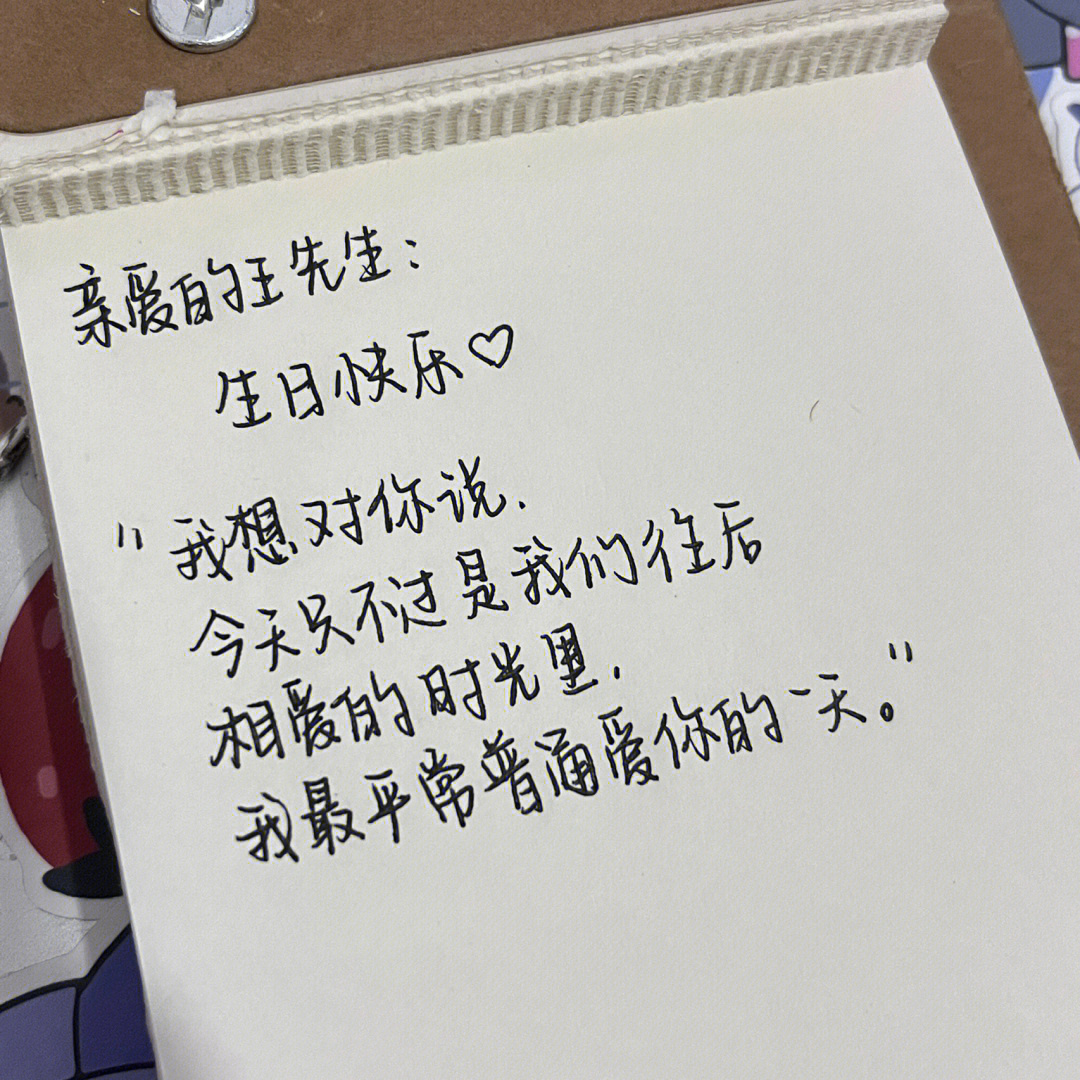 亲爱的王先生：
生日快乐♡
"我想对你说.
今天只不过是我们往后
相爱的时光里.
我最平常普通爱你的一天。"